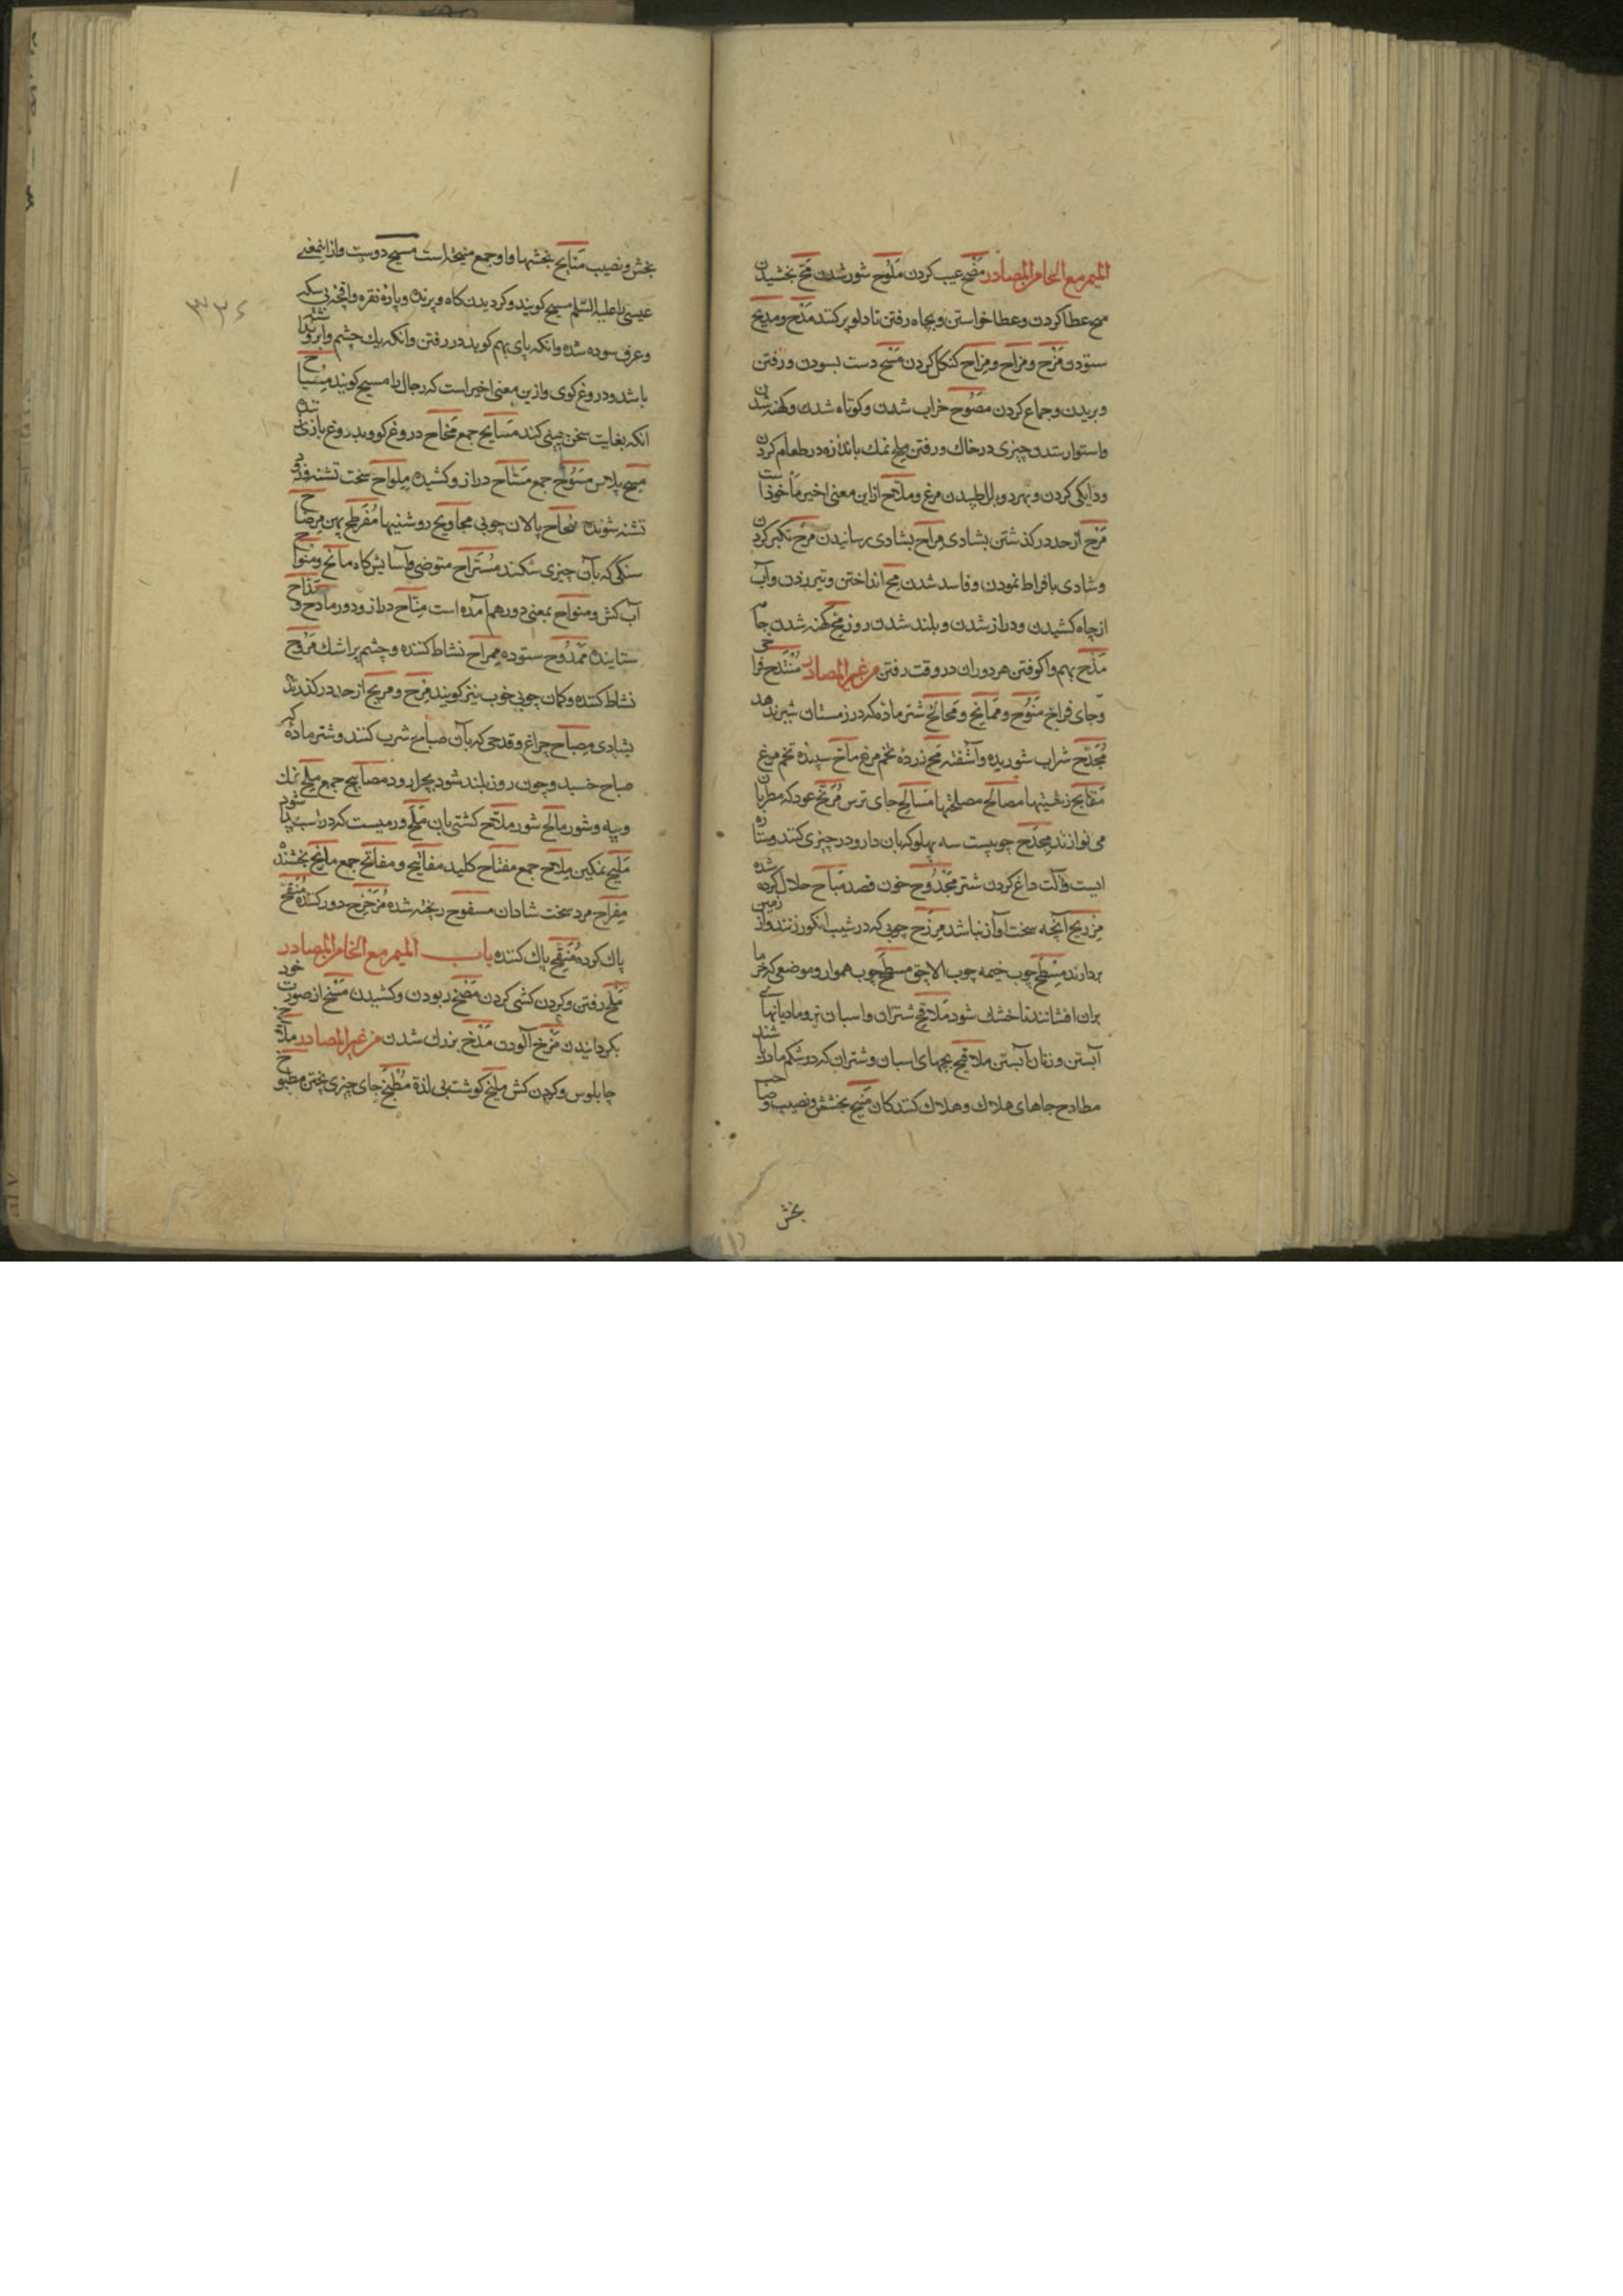 المیم مع الحا من المصادر مضح عیب کردن ملوح شور شدن منح بخشیدن
میح عطا کردن و عطا خواستن و بچاه رفتن تا دلو پر کنند مدح و مدیح
ستودن مزح و مزاح و مزاح کردن مسح دست بسودن و رفتن
و بریدن و جماع کردن مصوح خراب شدن و کوتاه شدن و کهنه شدن
و استوار شدن چیزی در خاک و رفتن ملح نمک باندازه در طعام کردن
و دایکی کردن و بهر دو بال طپیدن مرغ و ملاح ازین معنی اخیر مأخوذ است
مرح از حد در کذشتن بشادی مراح بشادی رسانیدن مرح تکبر کردن
و شادی بافراط نمودن و فاسد شدن متح انداختن و تیر زدن و آب
از چاه کشیدن و دراز شدن و بلند شدن روز مح کهنه شدن جامه
مذح بهم واکوفتن هر دو ران در وقت رفتن من غیر المصادر منتدح فراخی
و جای فراخ منوح و ممانح و مجالح شتر ماده که در زمستان شیر دهد
مجدح شراب شوریده و آشفته مح زرده تخم مرغ ماح سپیده تخم مرغ
مقابح زشتیها مصالح مصلحتها مسالح جای ترس عود که مطربان
می نوازند مجدح چوبیست سه پهلو که بان دارو در چیزی کنند و ستاره
ایست و آلت داغ کردن شتر مجدوح خون فصد مباح حلال کرده شده
آنچه سخت آواز نباشد مرزح چوبی که در شیب انکور زنند و از زمین
بردارند مسطح چوب خیمه چوب الاچق مسطح چوب هموار و موضعی که خرما
بران افشانند تا خشک شود ملاقح شتران و اسبان نر و مادیانهای
آبستن و زنان آبستن ملاقیح بچهای اسبان و شتران که در شکم مادر باشند
مطارح جاهای هلاک و هلاک کنندکان منیح بخشش و نصیب و صاحب
بخش
بخش و نصیب منایح بخششها و او جمع منیحه است مسیح دوست و از اینمعنی
عیسی را علیه السلم مسیح کویند و کردیدن کاه و پرنده و پاره نقره و اقچه بی سکه
و عرق سوده شده و انکه پای بهم کوبد در رفتن و انکه یک چشم و ابرو نداشته
باشد و دروغ کوی و ازین معنی اخیر است که دجال را مسیح کویند مسیاح
انکه بغایت سخن چینی کند مسابح جمع دروغ کو و بدروغ بازی
مسح پلاس مسوح جمع متاح دراز و کشیده ملواح سخت تشنه
تشنه شونده پالان چوبی مجاویح روشنیها مفرطح پهن مرضاح
سنکی که بآن چیزی شکنند مستراح متوضی و آسایش کاه مانح و منواح
آب کش و منواح بمعنی دور هم آمده است متاح دراز و دور مادح و مداح
ستاینده ممدوح ستوده ممراح نشاط کننده و چشم پر اشک مروح
نشاط کننده و کمان چوبی خوب نیز کویند مرح و مریح از حد در کذرنده
بشادی مصباح چراغ و قدحی که بآن صباح شرب کنند و شتر ماده که
صباح خسبد و چون روز بلند شود بچرا رود مصابیح جمع ملح نمک
و پیه و شور مالح شور ملاح کشتی بان ملح ورمیست که در اسب پیدا شود
ملیح نمکین ملاح جمع مفتاح کلید مفاتیح و مفاتح جمع مانح بخشنده
مفراح مرد سخت شادان مسفوح ریخته شده مزحزح دور کننده منقح
پاک کرده منقح پاک کننده باب المیم مع الخا من المصادر
ملخ رفتن و کردن کشی کردن مضخ ربودن و کشیدن مسخ از صورت خود
بکردانیدن مرخ آلودن مذخ بزرک شدن من غیر المصادر ملاخ
چابلوس و کردن کش ملیخ کوشت بی لذة مطبخ جای چیزی پختن مطبوخ
۳۳۶